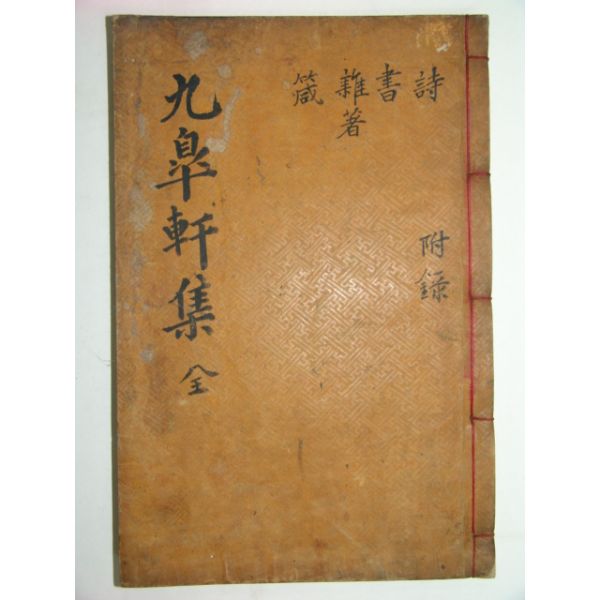 九皐軒集 全
詩
書
雜著
箴
附錄